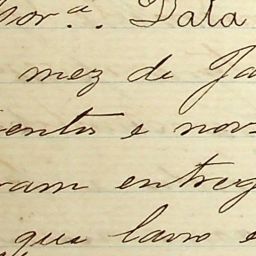 sor.ª. Data
mez de Ja
entos e nov
ram entreg
que lavro e